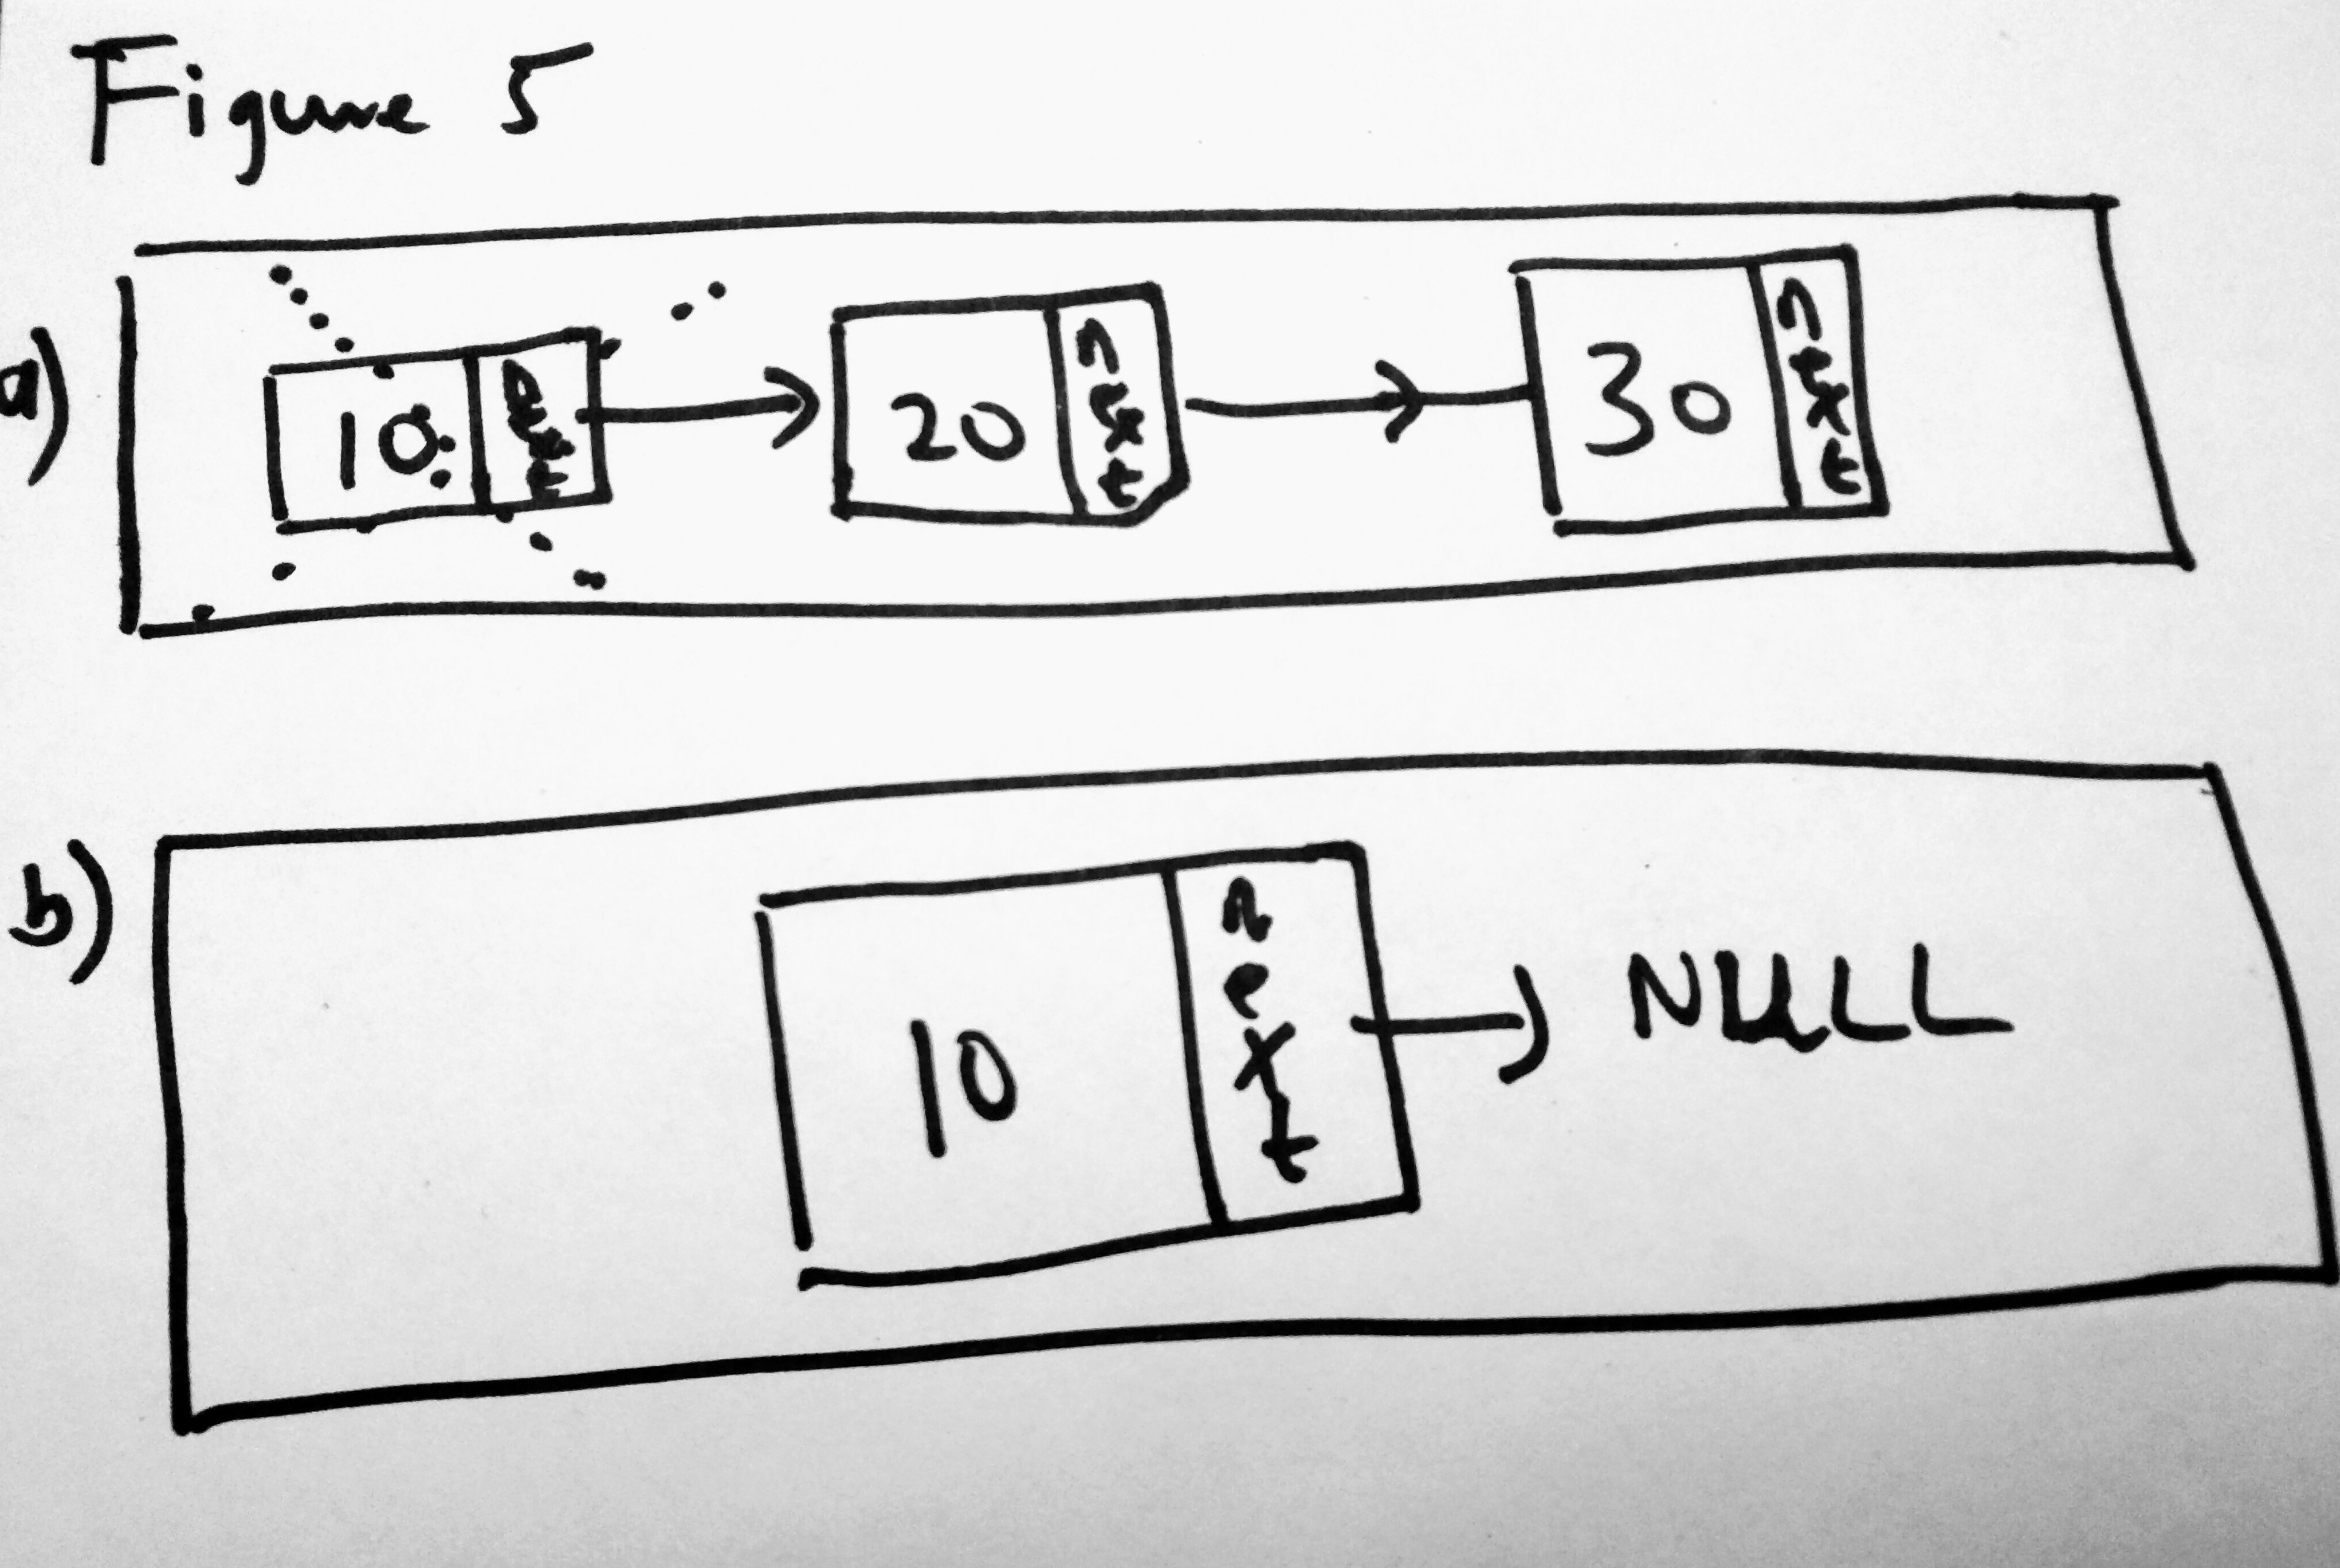 Figure 5
a)
10 next 20 next 30 next
b)
10 next NULL